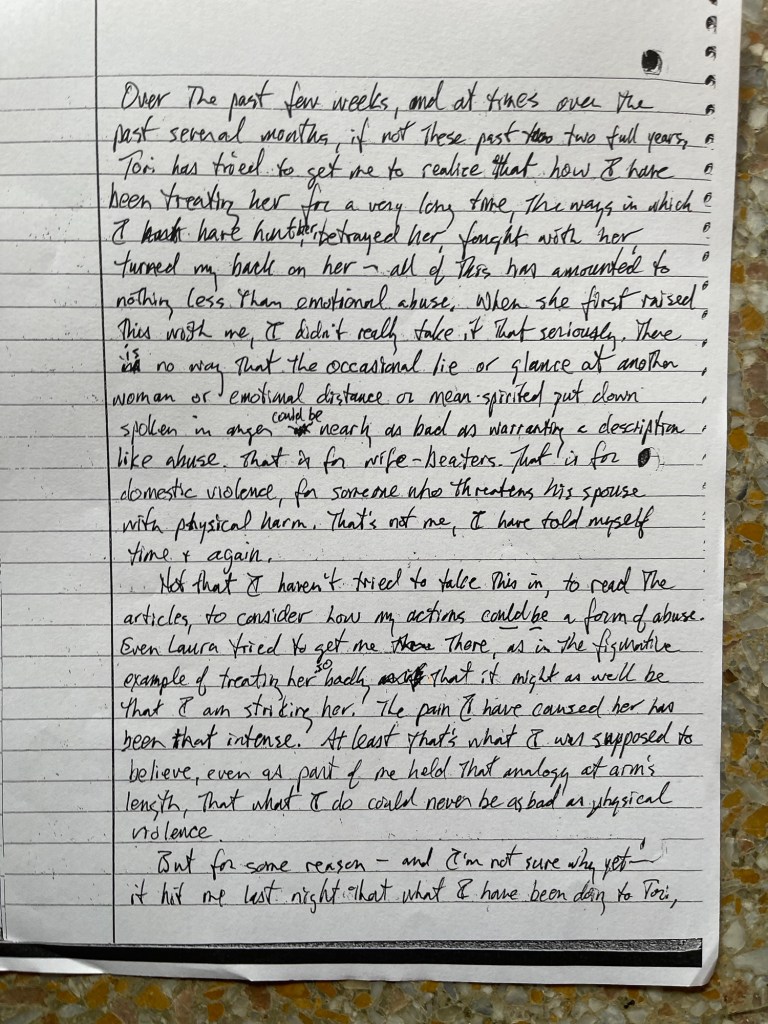 Over the past few weeks, and at times over the
past several months, if not these past two full years,
Tori has tried to get me to realize that how I have
been treating her for a very long time, the ways in which
I have hurt her, betrayed her, fought with her,
turned my back on her – all of this has amounted to
nothing less than emotional abuse. When she first raised
this with me, I didn't really take it that seriously. There
is no way that the occasional lie or glance at another
woman or emotional distance or mean-spirited put down
spoken in anger could be nearly as bad as warranting a description
like abuse. That is for wife-beaters. That is for
domestic violence, for someone who threatens his spouse
with physical harm. That's not me, I have told myself
time + again.
Not that I haven't tried to take this in, to read the
articles, to consider how my actions could be a form of abuse.
Even Laura tried to get me there, as in the figurative
example of treating her so badly that it might as well be
that I am striking her. The pain I have caused her has
been that intense. At least that's what I was supposed to
believe, even as part of me held that analogy at arm's
length, that what I do could never be as bad as physical
violence
But for some reason – and I'm not sure why yet –
it hit me last night that what I have been doing to Tori,